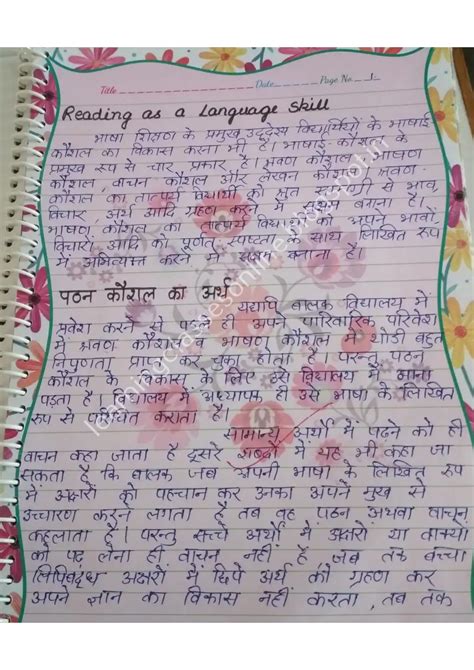 Title Date Page No 1
Reading as a Language Skill
भाषा शिक्षण के प्रमुख उद्देश्य विद्यार्थियों के भाषाई
कौशल का विकास करना भी है। भाषाई कौशल के
प्रमुख रूप से चार प्रकार है। श्रवण कौशल, भाषण
कौशल, वाचन कौशल और लेखन कौशल। श्रवण
कौशल का विद्यार्थी को श्रुत से भाव,
विचार, अर्थ आदि ग्रहण करने में बनाना है।
भाषण कौशल का विद्यार्थी को अपने भावों
विचारों, आदि को पूर्णत स्पष्टता के साथ लिखित रूप
में अभिव्यक्त करने में सक्षम बनाना है।
पठन कौशल का अर्थ
यद्यपि बालक विद्यालय में
प्रवेश करने से पहले ही अपने पारिवारिक परिवेश
में श्रवण कौशल व भाषण कौशल में थोडी बहुत
निपुणता प्राप्त कर चुका होता है। परन्तु पठन
कौशल के विकास के लिए उसे विद्यालय में आना
पड़ता है। विद्यालय में अध्यापक ही उसे भाषा के लिखित
रूप से परिचित कराता है।
सामान्य अर्थों में पढ़ने को ही
वाचन कहा जाता है दूसरे शब्दों में यह भी कहा जा
सकता है कि बालक जब अपनी भाषा के लिखित रूप
में अक्षरों को पहचान कर उनका अपने मुख से
उच्चारण करने लगता है तब वह पठन अथवा वाचन
कहलाता है। परन्तु सच्चे अर्थों में अक्षरों या वाक्यों
को पढ़ लेना ही वाचन नहीं है, जब तक बच्चा
लिपिबद्ध अक्षरों में छिपे अर्थ को ग्रहण कर
अपने ज्ञान का विकास नहीं करता, तब तक